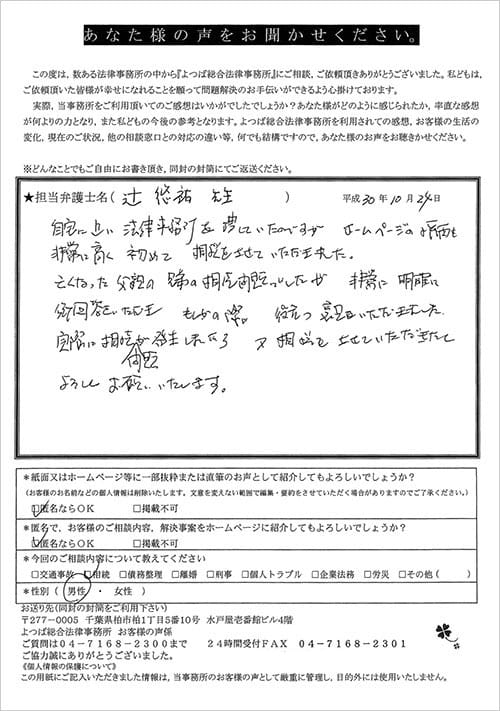 あなた様の声をお聞かせください。
この度は、数ある法律事務所の中から『よつば総合法律事務所』にご相談、ご依頼頂きありがとうございました。私どもは、
ご依頼頂いた皆様が幸せになれることを願って問題解決のお手伝いができるよう心掛けております。
実際、当事務所をご利用頂いてのご感想はいかがでしたでしょうか?あなた様がどのように感じられたか、率直な感想
が何よりの力となり、また私どもの今後の参考となります。よつば総合法律事務所を利用されての感想、お客様の生活の
変化、現在のご状況、他の相談窓口との対応の違い等、何でも結構ですので、あなた様のお声をお聴きかせください。
※どんなことでもご自由にお書き頂き、同封の封筒にてご返送ください。
★担当弁護士名( 辻 悠祐 先生 ) 平成30年10月24日
自宅に近い法律事務所を探していたのですが ホームページの評価も
非常に高く 初めて 相談をさせていただきました。
亡くなった父親の 相続問題でしたが 非常に 明確に
御回答をいただき もしもの際、
実際に相続問題が発生したら 又相談を させていただきたく
よろしくお願いいたします。
*紙面又はホームページ等に一部抜粋または直筆のお声として紹介してもよろしいでしょうか?
(お客様のお名前などの個人情報は削除いたします。文意を変えない範囲で編集・要約をさせていただく場合がありますのでご了承ください。)
☑匿名ならOK □掲載不可
*匿名で、お客様のご相談内容、解決事案をホームページに紹介してもよろしいでしょうか?
☑匿名ならOK □掲載不可
*今回のご相談内容について教えてください
□交通事故 ☑相続 □債務整理 □離婚 □刑事 □個人トラブル □企業法務 □労災 □その他( )
*性別( 男性 ・ 女性 )
お送り先(同封の封筒をご利用下さい)
〒277-0005 千葉県柏市柏1丁目5番10号 水戸屋壱番館ビル4階
よつば総合法律事務所 お客様の声係
ご質問は04-7168-2300まで 24時間受付FAX 04-7168-2301
ご協力誠にありがとうございました。
《個人情報の保護について》
この用紙にご記入いただきました情報は、当事務所のお客様の声として厳重に管理し、目的外には使用いたしません。